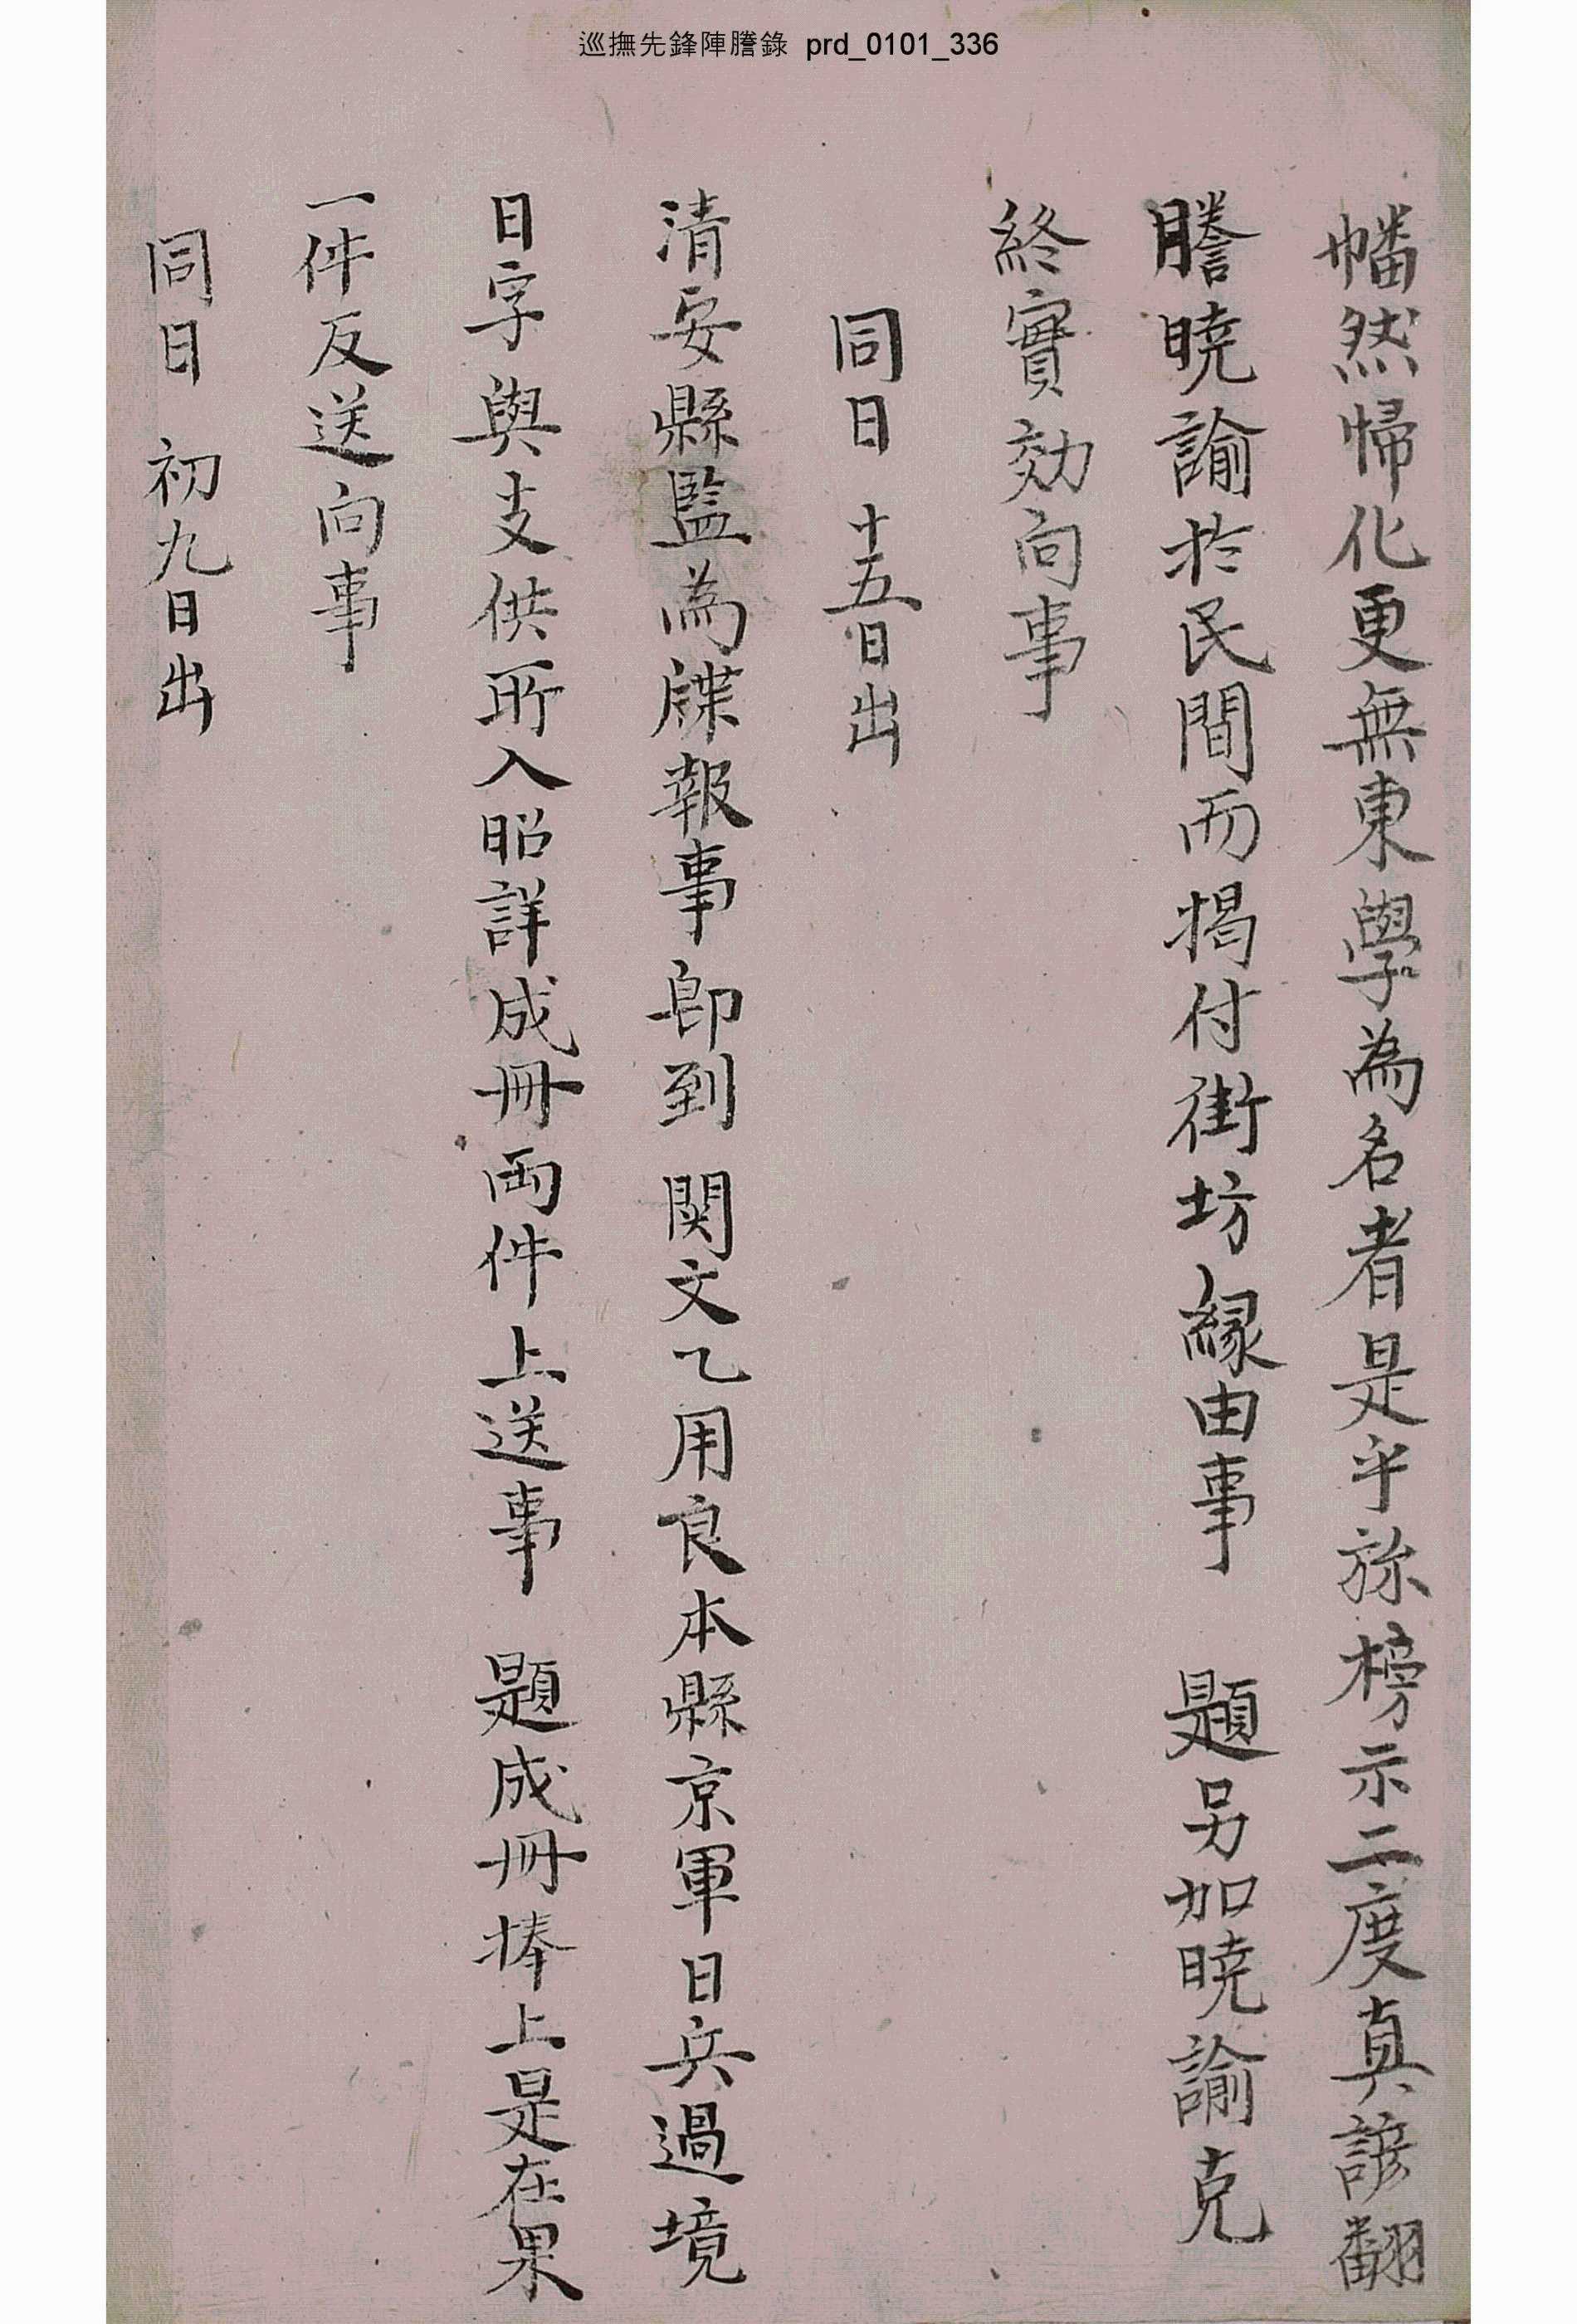 巡撫先鋒陣謄錄 prd_0101_336
幡然帰化更無東學為名者是乎旀榜示二度真諺翻
謄曉諭於民間而揭付街坊縁由事 題另加曉諭克
終實効向事
同日 十五日出
清安縣監為牒報事卽到 関文乙用良本縣京軍日兵過境
日字與支供所入昭詳成冊両件上送事 題成冊捧上是在果
一件反送向事
同日 初九日出